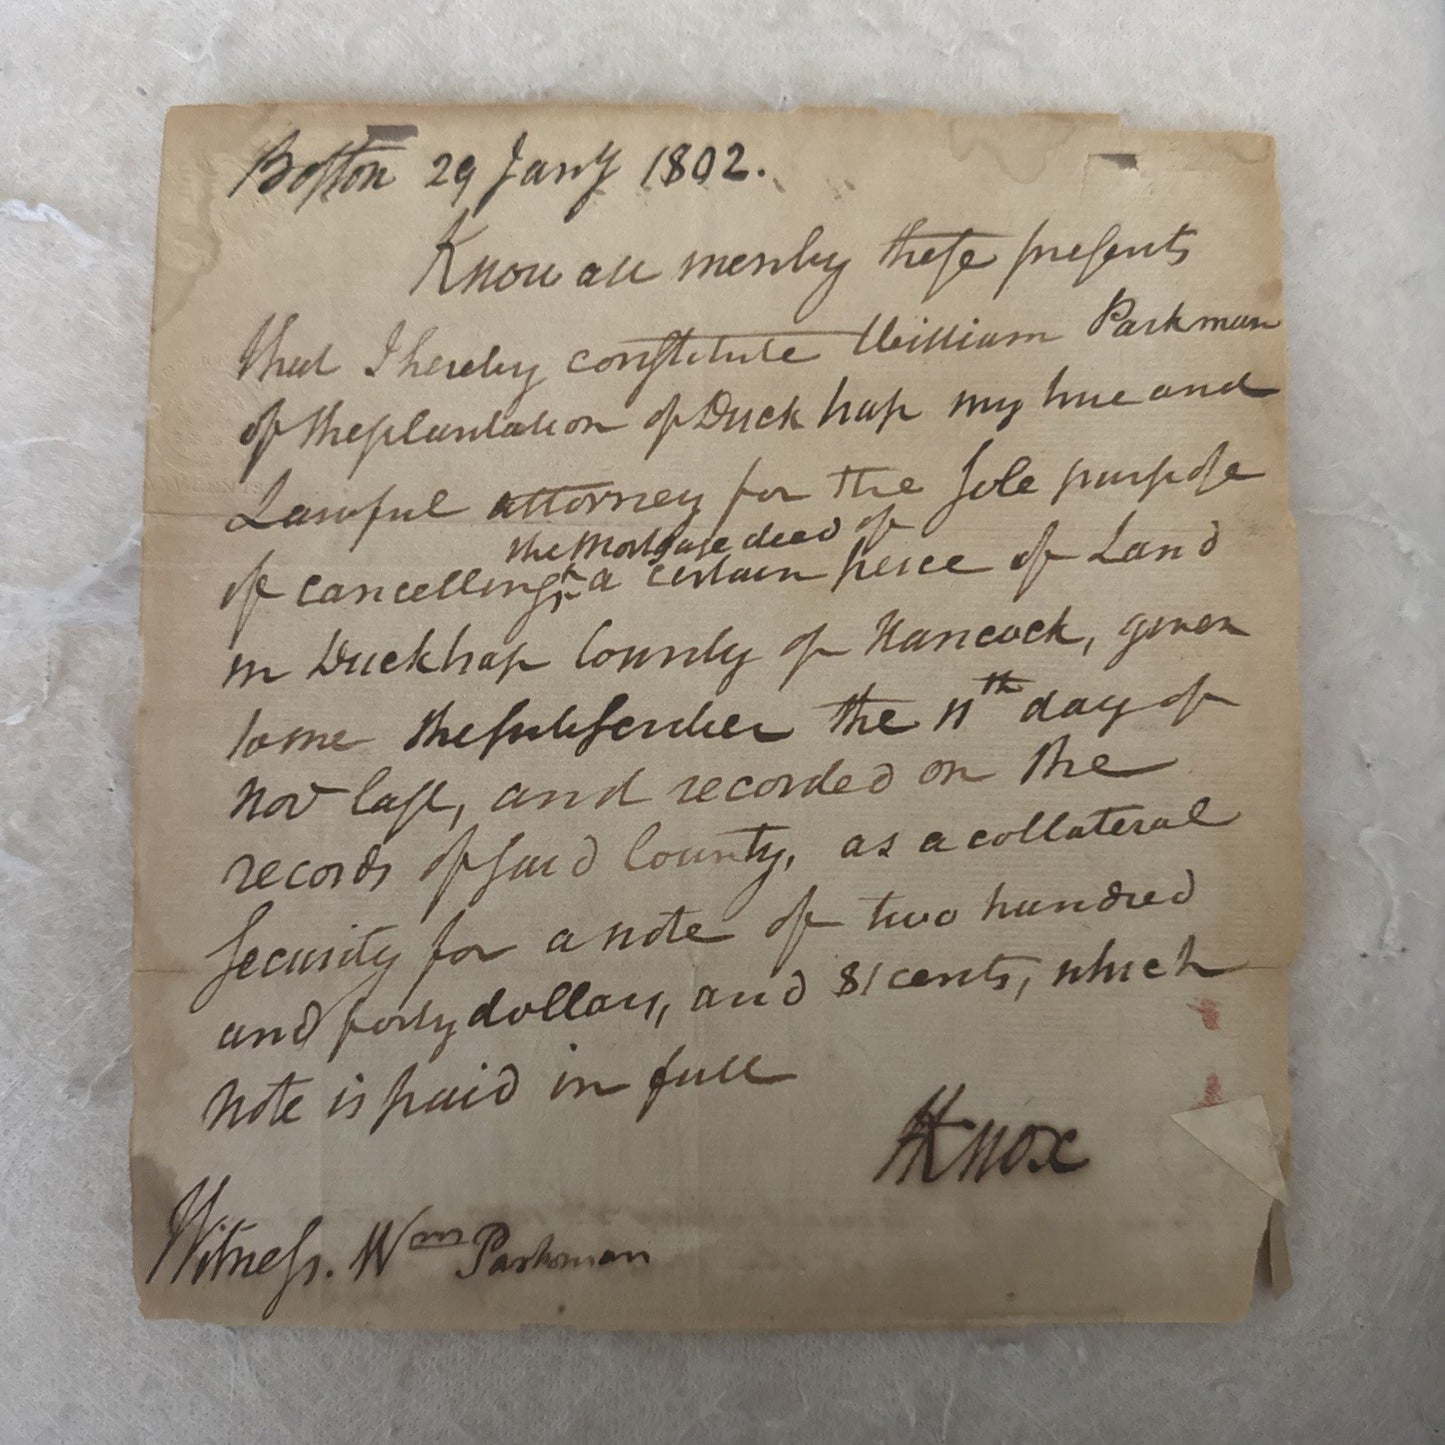 Boston 29 Jany 1802.
Know all men by these presents
that I hereby constitute William Parkman
of the plantation of Duck trap my true and
Lawful attorney for the sole purpose
the Mortgage deed of
of cancelling ^ a certain peice of Land
in Ducktrap County of Hancock, given
to me the subscriber the 11th day of
Nov last, and recorded on the
records of said County, as a collateral
security for a note of two hundred
and forty dollars, and 81 cents, which
note is paid in full
HKnox
Witness. Wm Parkman